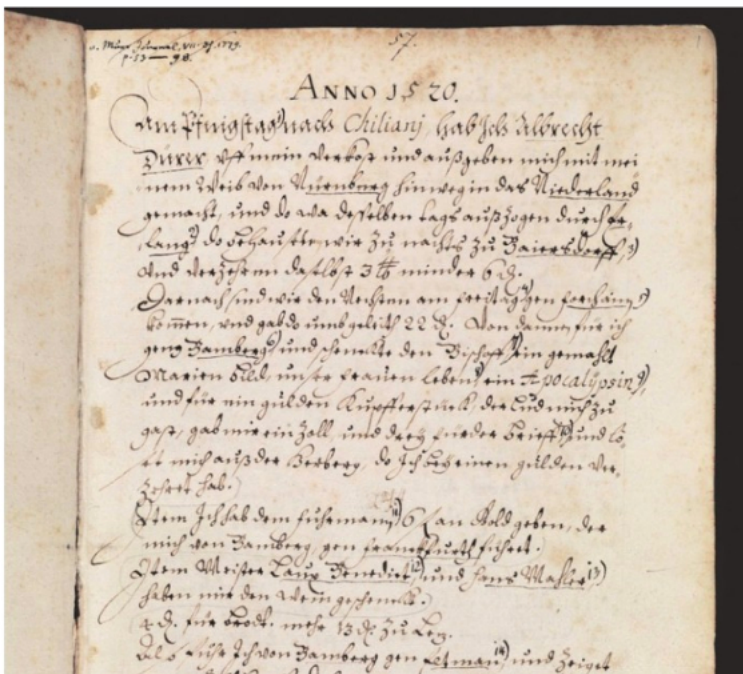 v. Murr Journal. VII. Th. 1779.
p. 53 — 98.
57.
ANNO 1520.
Am Pfingstag nach Chilianj, hab Ich Albrecht
Dürer vff mein verkost und außgeben mich mit mei
nem Weib von Nurnberg hinweg in das Niederland
gemacht, und do wir desselben tags außzogen durch Er-
lang do behausten wir zu nachts zu Baiersdorff, 3)
und verzehrten daselbst 3 ℔ minder 6 ₰.
Darnach sind wir den nechsten am freitag gen Forchäim
kommen, vnd gab do umb geleith 22 ₰. Von dannen fuhr ich
geng Bamberg und schenckte den Bischoff ein gemahlt
Marien bild, unser frauen leben, ein Apocalÿpsin 9),
und für ein gulden Kupfferstuck, der lud mich zu
gast, gab mir ein Zoll und dreÿ fürder brieff und lö-
st mich auß der Herberg, do Ich beÿ einen gulden ver-
zehret hab.
Item Ich hab dem fuhrmann 11) 6 f an Gold geben, der
mich von Bamberg gen Franckfurth führet.
Item Meister Laux Benedict, 12) und Hans Mahler 13)
haben mir den Wein geschenckt.
4 ₰. für brodt. mehr 13 ₰. zu Lez.
Also fuhr Ich von Bamberg gen Eltman 14) und zeiget